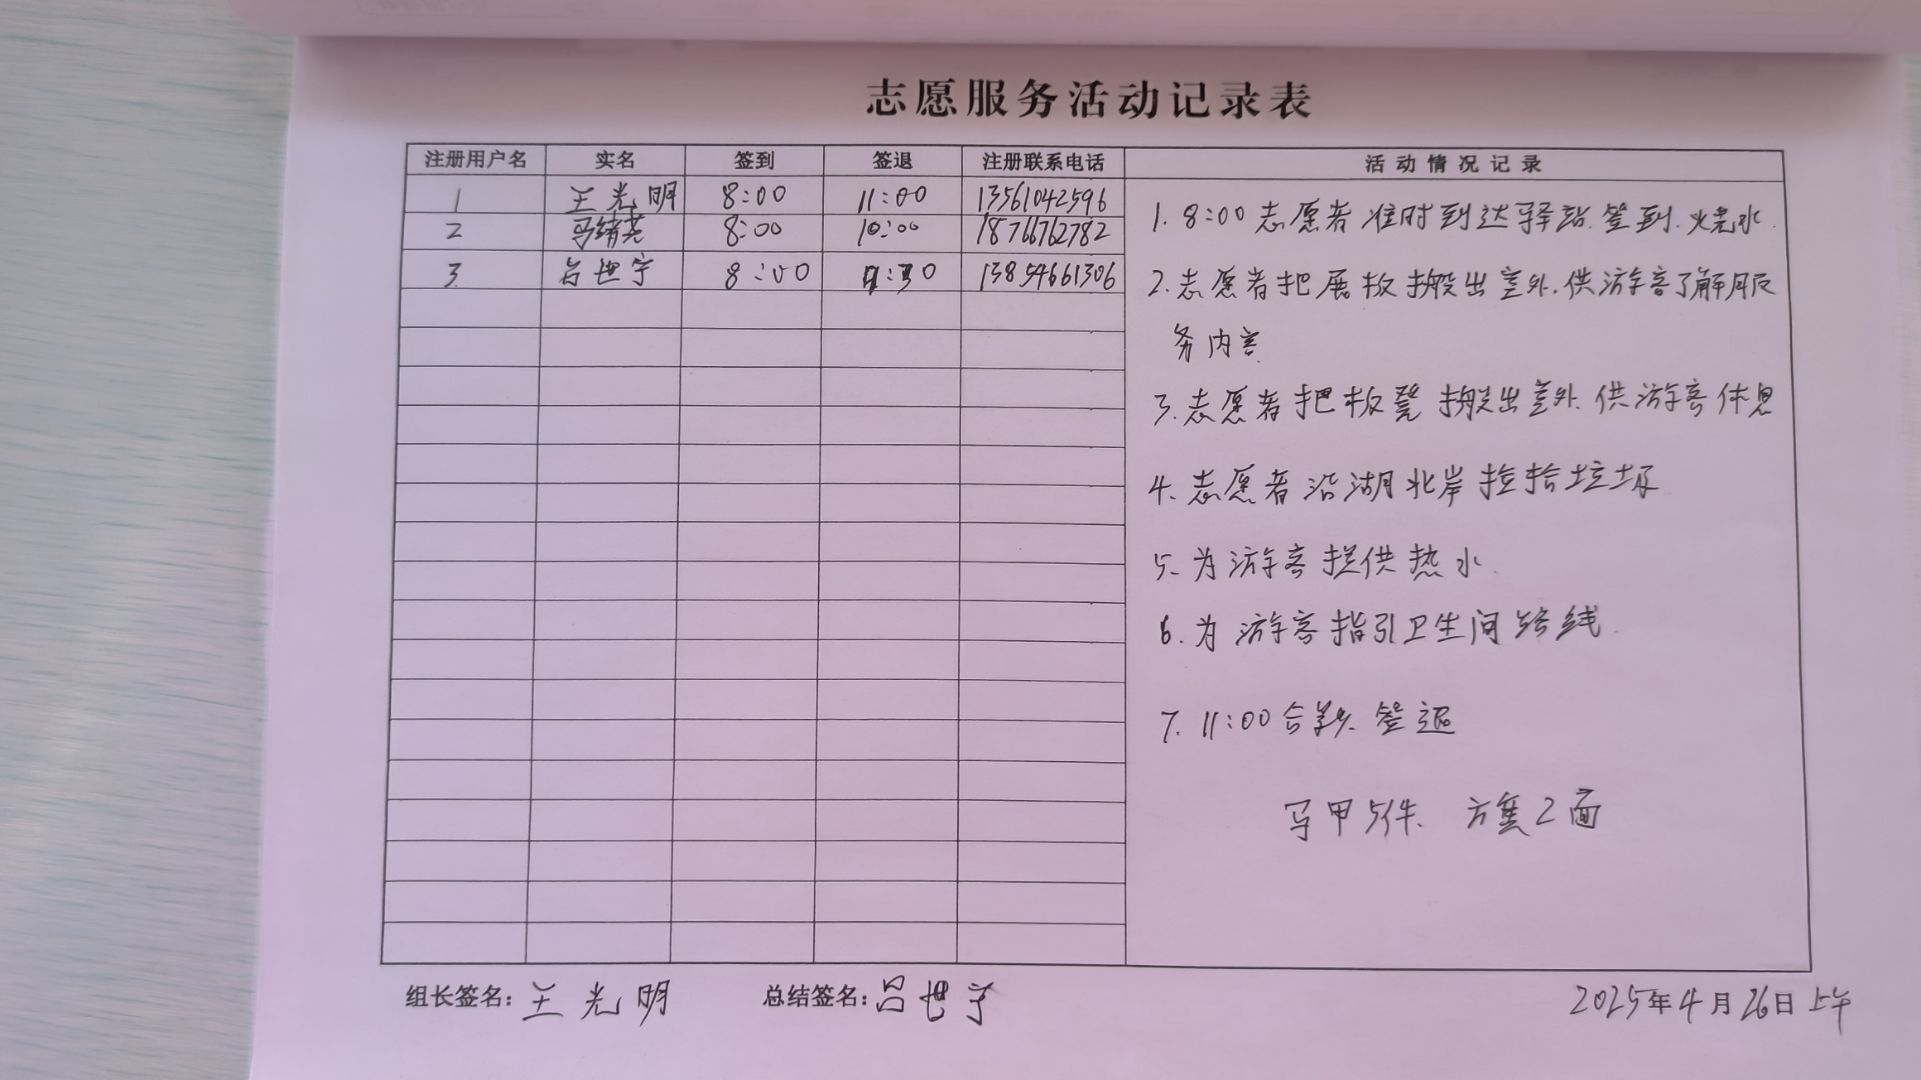 志愿服务活动记录表
注册用户名 实名 签到 签退 注册联系电话 活动情况记录
1 王光明 8:00 11:00 13561042596
2 马绪英 8:00 10:00 18766762782
3 吕世宇 8:00 :30 13854661306
1. 8:00志愿者准时到达驿站.签到.烧水.
2.志愿者把展板搬出室外.供游客了解服
务内容.
3.志愿者把板凳搬出室外.供游客休息
4.志愿者沿湖北岸捡拾垃圾
5.为游客提供热水.
6.为游客指引卫生间路线.
7. 11:00合影.签退
马甲5件. 方巾2面
组长签名:王光明 总结签名:吕世宇 2025年4月26日上午